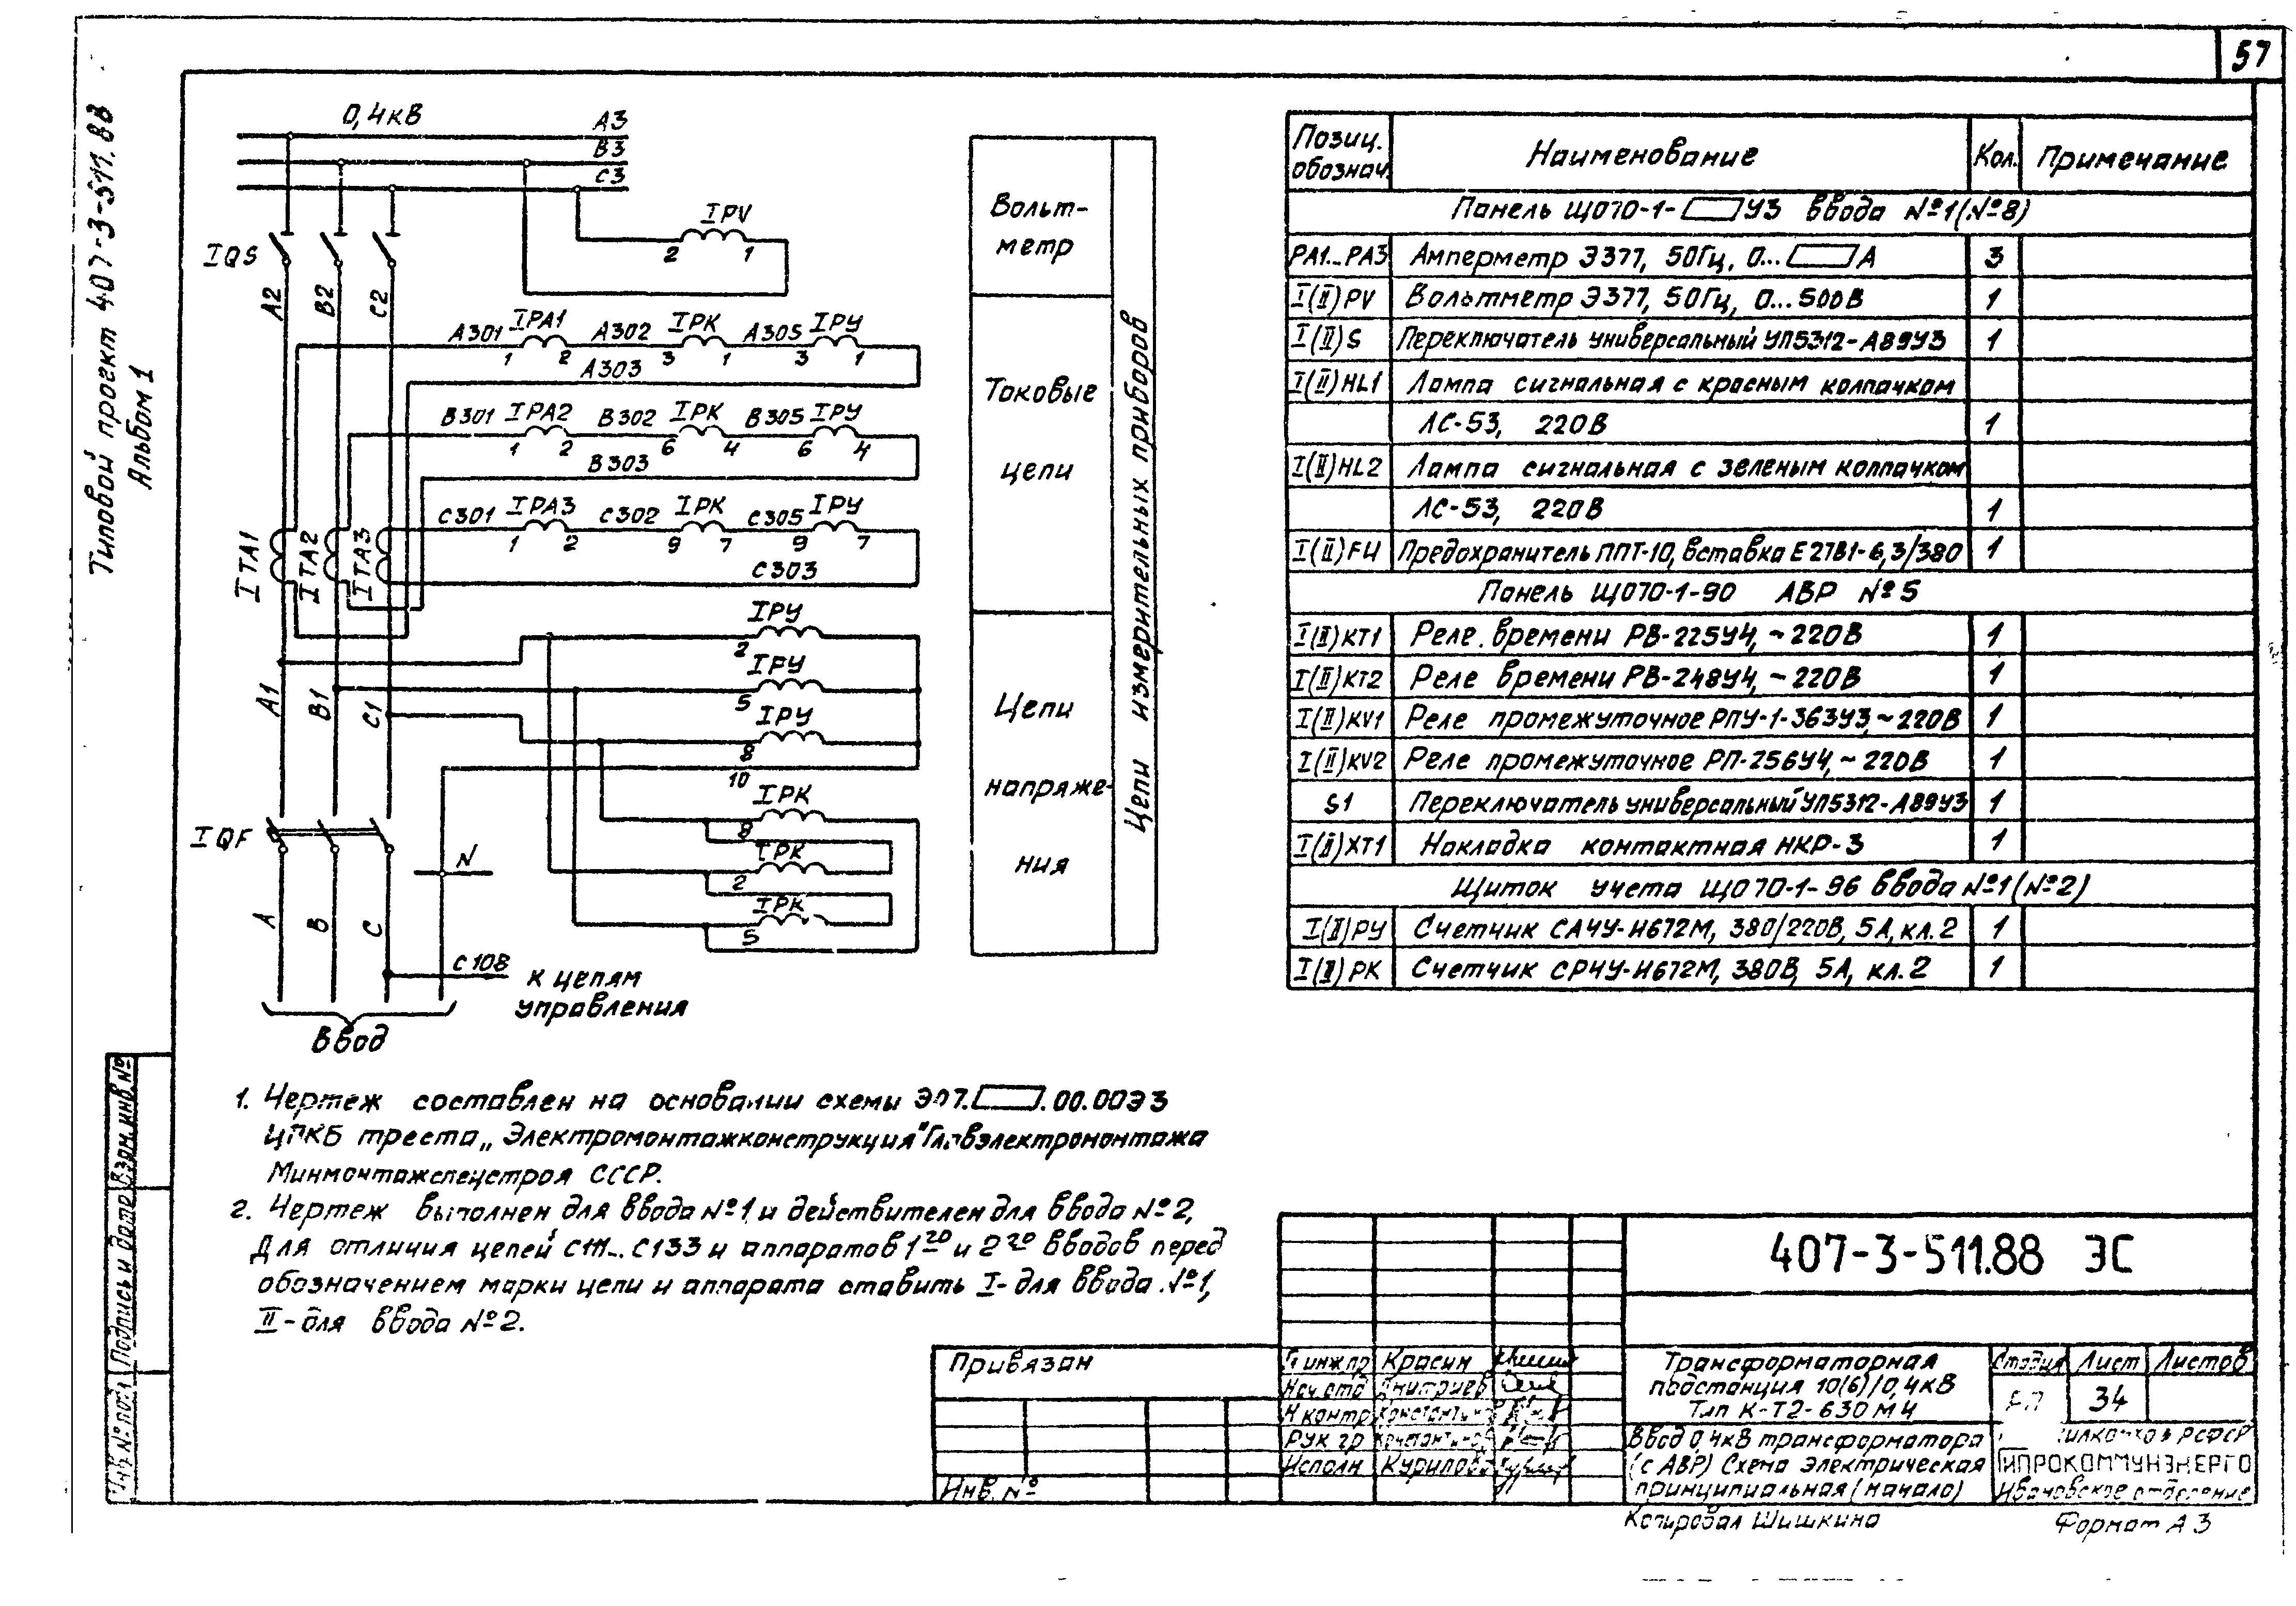 57
Типовой проект 407-3-511.88
Альбом 1
0,4кВ
А3
В3
С3
IPV
2 1
IQS
А2 В2 С2
А301 IPA1 А302 IPK А305 IРУ
1 2 3 1 3 1
А303
В301 IPA2 В302 IPK В305 IРУ
1 2 6 4 6 4
В303
С301 IPA3 С302 IPK С305 IРУ
1 2 9 7 9 7
С303
ITA1 ITA2 ITA3
IРУ
2
IРУ
5
IРУ
8
10
А1 В1 С1
IPK
8
IPK
2
IPK
5
IQF
N
А В С
С108
к цепям
управления
Ввод
Вольт-
метр
Токовые
цепи
Цепи
напряже-
ния
Цепи измерительных приборов
Позиц. обознач. Наименование Кол. Примечание
Панель ЩО70-1-▭У3 ввода №1(№8)
РА1...РА3 Амперметр Э377, 50Гц, 0...▭А 3
I(II)PV Вольтметр Э377, 50Гц, 0...500В 1
I(II)S Переключатель универсальный УП5312-А89У3 1
I(II)HL1 Лампа сигнальная с красным колпачком
ЛС-53, 220В 1
I(II)HL2 Лампа сигнальная с зеленым колпачком
ЛС-53, 220В 1
I(II)FU Предохранитель ППТ-10, вставка Е27В1-6,3/380 1
Панель ЩО70-1-90 АВР №5
I(II)KT1 Реле времени РВ-225У4, ~220В 1
I(II)KT2 Реле времени РВ-248У4, ~220В 1
I(II)KV1 Реле промежуточное РПУ-1-363У3, ~220В 1
I(II)KV2 Реле промежуточное РП-256У4, ~220В 1
S1 Переключатель универсальный УП5312-А89У3 1
I(II)XT1 Накладка контактная НКР-3 1
Щиток учета ЩО70-1-96 ввода №1(№2)
I(II)РУ Счетчик СА4У-И672М, 380/220В, 5А, кл.2 1
I(II)РК Счетчик СР4У-И672М, 380В, 5А, кл.2 1
1. Чертеж составлен на основании схемы Э07.▭.00.00Э3
ЦПКБ треста „Электромонтажконструкция" Главэлектромонтажа
Минмонтажспецстроя СССР.
2. Чертеж выполнен для ввода №1 и действителен для ввода №2,
Для отличия цепей С111...С133 и аппаратов 1го и 2го вводов перед
обозначением марки цепи и аппарата ставить I-для ввода №1,
II-для ввода №2.
Взам.инв.№
Подпись и дата
Инв.№подл
Привязан
Инв.№
Гл инж.пр Красин
Нач.отд Дмитриев
Н контр
Рук гр
Исполн Курилова
407-3-511.88 ЭС
Трансформаторная
подстанция 10(6)/0,4кВ
Тип К-Т2-630М4
Стадия Лист Листов
РП 34
Ввод 0,4кВ трансформатора
(с АВР) Схема электрическая
принципиальная (начало)
РСФСР
ГИПРОКОММУНЭНЕРГО
Ивановское отделение
Копировал Шишкина
Формат А3